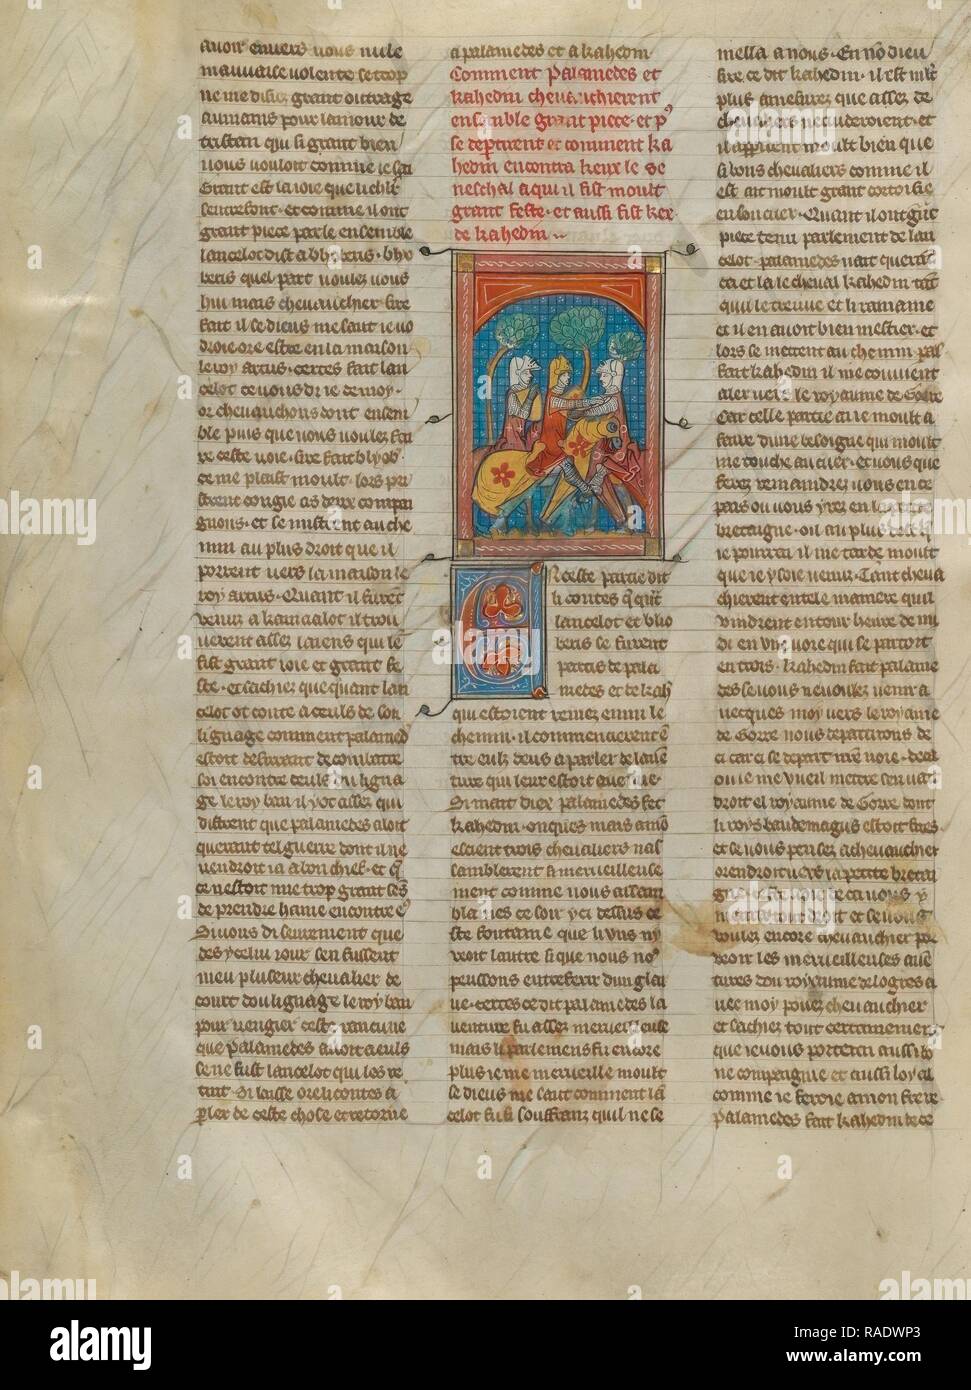 avoir envers vous nule
mauvaise volente se trop
ne me disiez grant outrage
aumains pour lamour de
tristan qui si grant bien
vous vouloit comme ie sai
Grant est la ioie que li chlr
sentrefont et comme il ont
grant piece parle ensemble
lancelot dist a blyoberis blyo
beris quel part voulez vous
hui mais chevauchier sire
fait il se dieus me saut ie vo
droie ore estre en la maison
le roy artus certes fait lan
celot ce vous di ie de moy
or chevauchons dont ensem
ble puis que vous voulez fai
re ceste voie sire fait blyob
ce me plaist moult lors pri
strent congie as deux compai
gnons et se mistrent au che
min au plus droit que il
porrent vers la maison le
roy artus Quant il furent
venuz a kamaalot il trou
verent assez laiens qui le
fist grant ioie et grant fe
ste et sachiez que quant lan
celot ot conte a ceuls de son
lignage comment palamed
estoit desirrant de combatre
soi encontre ceuls du ligna
ge le roy ban il y ot assez qui
distrent que palamedes aloit
querant tel guerre dont il ne
vendroit ia a bon chief et q
ce nestoit mie trop grant sens
de prendre haine encontre els
Si vous di seurement que
des ycelui iour sen fussent
meu pluseur chevalier de
court dou liguage le roy ban
pour vengier ceste rancune
que palamedes avoit a euls
se ne fust lancelot qui les re
tint Si laisse ore li contes a
parler de ceste chose et retorne
a palamedes et a kahedin
Comment Palamedes et
kahedin chevauchierent
ensamble grant piece et puis
se departirent et comment ka
hedin encontra keux le se
neschal a qui il fist moult
grant feste et aussi fist kex
de kahedin
En ceste partie dit
li contes que quant
lancelot et blio
beris se furent
partis de pala
medes et de kah
qui estoient remez enmi le
chemin il commencerent en
tre euls deus a parler de laven
ture qui leur estoit avenue
Si maint diex palamedes fet
kahedin onques mais a mon
escient trois chevaliers nas
samblerent si merveilleuse
ment comme nous assam
blames ce soir yci dessus ce
ste fontaine que li uns ny
veoit lautre si que nous nous
peussons entreferir dun glai
ve certes ce dit palamedes la
venture fu assez merveilleuse
mais li parlemens fu encore
plus ie me merveille moult
se dieus me saut comment lan
celot fu si souffranz quil ne se
mella a nous En non dieu
sire ce dit kahedin il est mlt
plus amesurez que assez de
chevaliers ne cuideroient et
il apartient moult bien que
si bons chevaliers comme il
est ait moult grant cortoisie
en son cuer Quant il ont grant
piece tenu parlement de lan
celot palamedes vait querant
ca et la le cheval kahedin tant
qui le treuve et li ramaine
et il en avoit bien mestier et
lors se metent au chemin pal
fait kahedin il me couvient
aler vers le royaume de Gorre
Car celle partie ai ie moult a
faire dune besoigne qui moult
me touche au cuer et vous que
ferez remaindrez vous en ce
pais ou vous yrez en la petite
bretaigne oil au plus tost que
ie pourrai il me tarde moult
que ie y soie venuz Tant cheva
chierent en tele maniere quil
vindrent entour heure de mi
di en une voie qui se partoit
en trois kahedin fait palame
des se vous ne voulez venir a
vecques moy vers le royame
de Gorre nous departirons de
ci car ci se depart men voie
ou ie me vueil metre sen vait
droit el royaume de Gorre dont
li roys baudemagus estoit sires
et se vous pensez a chevauchier
orendroit vers la petite bretai
gne
vous
voulez encore chevauchier par
devoir les merveilleuses aven
tures dou royaume de logres a
vec moy pouez chevauchier
et sachiez tout certainement
que ie vous porterai aussi bo
ne compaignie et aussi loyal
comme ie feroie a mon frere
Palamedes fait kahedin de ce
alamy
alamy
Image ID: RADWP3
www.alamy.com